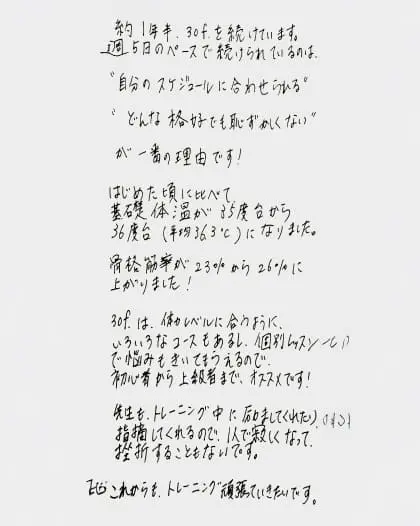 約1年半、30f.を続けています。
週5日のペースで続けられているのは、
"自分のスケジュールに合わせられる"
"どんな格好でも恥ずかしくない"
が一番の理由です!
はじめた頃に比べて
基礎体温が35度台から
36度台(平均36.3℃)になりました。
骨格筋率が23%から26%に
上がりました!
30f.は、体力レベルに合うように、
いろいろなコースもあるし、個別レッスン
で悩みもきいてもらえるので、
初心者から上級者まで、オススメです!
先生も、トレーニング中に励ましてくれたり、
指摘してくれるので、1人で寂しくなって、
挫折することもないです。
これからも、トレーニング頑張っていきたいです。